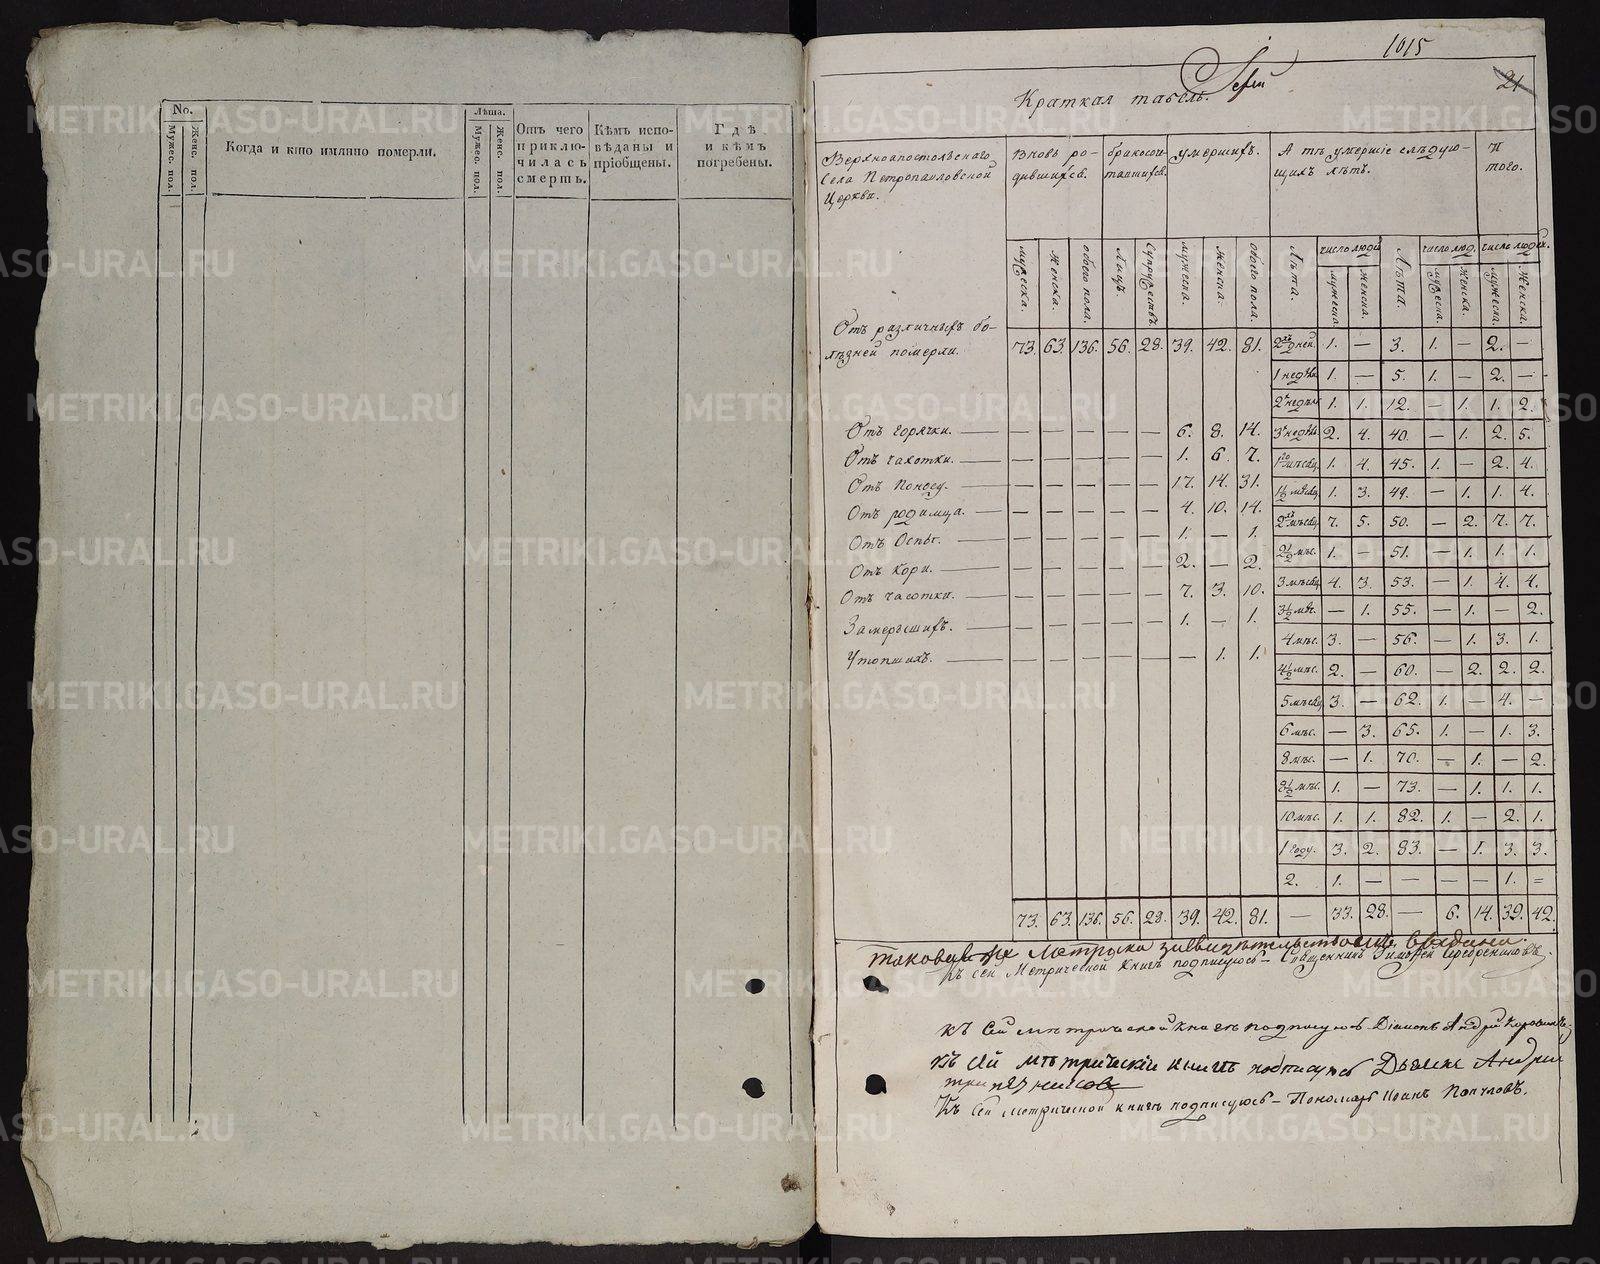 No.
Мужес. пол.
Женс. пол.
Когда и кто имянно померли.
Лѣта.
Мужес. пол.
Женс. пол.
Отъ чего
приклю-
чилась
смерть.
Кѣмъ испо-
вѣданы и
прiобщены.
Гдѣ
и кѣмъ
погребены.
1015
21
Краткая табель.
Верхнеапостольскаго
Села Петропавловской
Церкви.
Вновь ро-
дившихся.
бракосоче-
тавшихся.
умершихъ.
А тѣ умершiе слѣдую-
щихъ лѣтъ.
И
того.
мужеска.
Женска.
обоего пола.
Лицъ.
Супружествъ.
мужеска.
женска.
обоего пола.
Лѣта.
число людей
Лѣта.
число люд.
число людей.
мужеска.
женска.
мужеска.
женска.
мужеска.
женска.
Отъ различныхъ бо-
лѣзней померли. 73. 63. 136. 56. 28. 39. 42. 81. 2хъ дней. 1. — 3. 1. — 2. —
1 недѣли. 1. — 5. 1. — 2. —
2хъ недѣль 1. 1. 12. — 1. 1. 2.
Отъ горячки. — — — — — — 6. 8. 14. 3хъ недѣль. 2. 4. 40. — 1. 2. 5.
Отъ чахотки. — — — — — — 1. 6. 7. 1го мѣсяц. 1. 4. 45. 1. — 2. 4.
Отъ Поносу. — — — — — — 17. 14. 31. 1½ мѣсяц. 1. 3. 49. — 1. 1. 4.
Отъ родимца. — — — — — — 4. 10. 14. 2хъ мѣсяц. 7. 5. 50. — 2. 7. 7.
Отъ Оспы. — — — — — — 1. — 1. 2½ мѣс. 1. — 51. — 1. 1. 1.
Отъ Кори. — — — — — — 2. — 2. 3 мѣсяц. 4. 3. 53. — 1. 4. 4.
Отъ часотки. — — — — — — 7. 3. 10. 3½ мѣс. — 1. 55. — 1. — 2.
Замерзшихъ. — — — — — — 1. — 1. 4 мѣс. 3. — 56. — 1. 3. 1.
Утопшихъ. — — — — — — — 1. 1. 4½ мѣс. 2. — 60. — 2. 2. 2.
5 мѣсяц. 3. — 62. 1. — 4. —
6 мѣс. — 3. 65. 1. — 1. 3.
8 мѣс. — 1. 70. — 1. — 2.
8½ мѣс. 1. — 73. — 1. 1. 1.
10 мѣс. 1. 1. 82. 1. — 2. 1.
1 году. 3. 2. 83. — 1. 3. 3.
2. 1. — — — — 1. =
73. 63. 136. 56. 28. 39. 42. 81. — 33. 28. — 6. 14. 39. 42.
таковая метрика
Къ сей Метрической Книгѣ подписуюсь — Священникъ Тимофей Серебрениковъ.
Къ Сей метрической Книгѣ подписуюсь Дiаконъ Андрей
Къ Сей мѣтрическiй книгѣ подписуюсь Дьячекъ Андрей
Къ Сей метрической книгѣ подписуюсь — Пономарь Iоанъ Популовъ.
METRIKI.GASO-URAL.RU